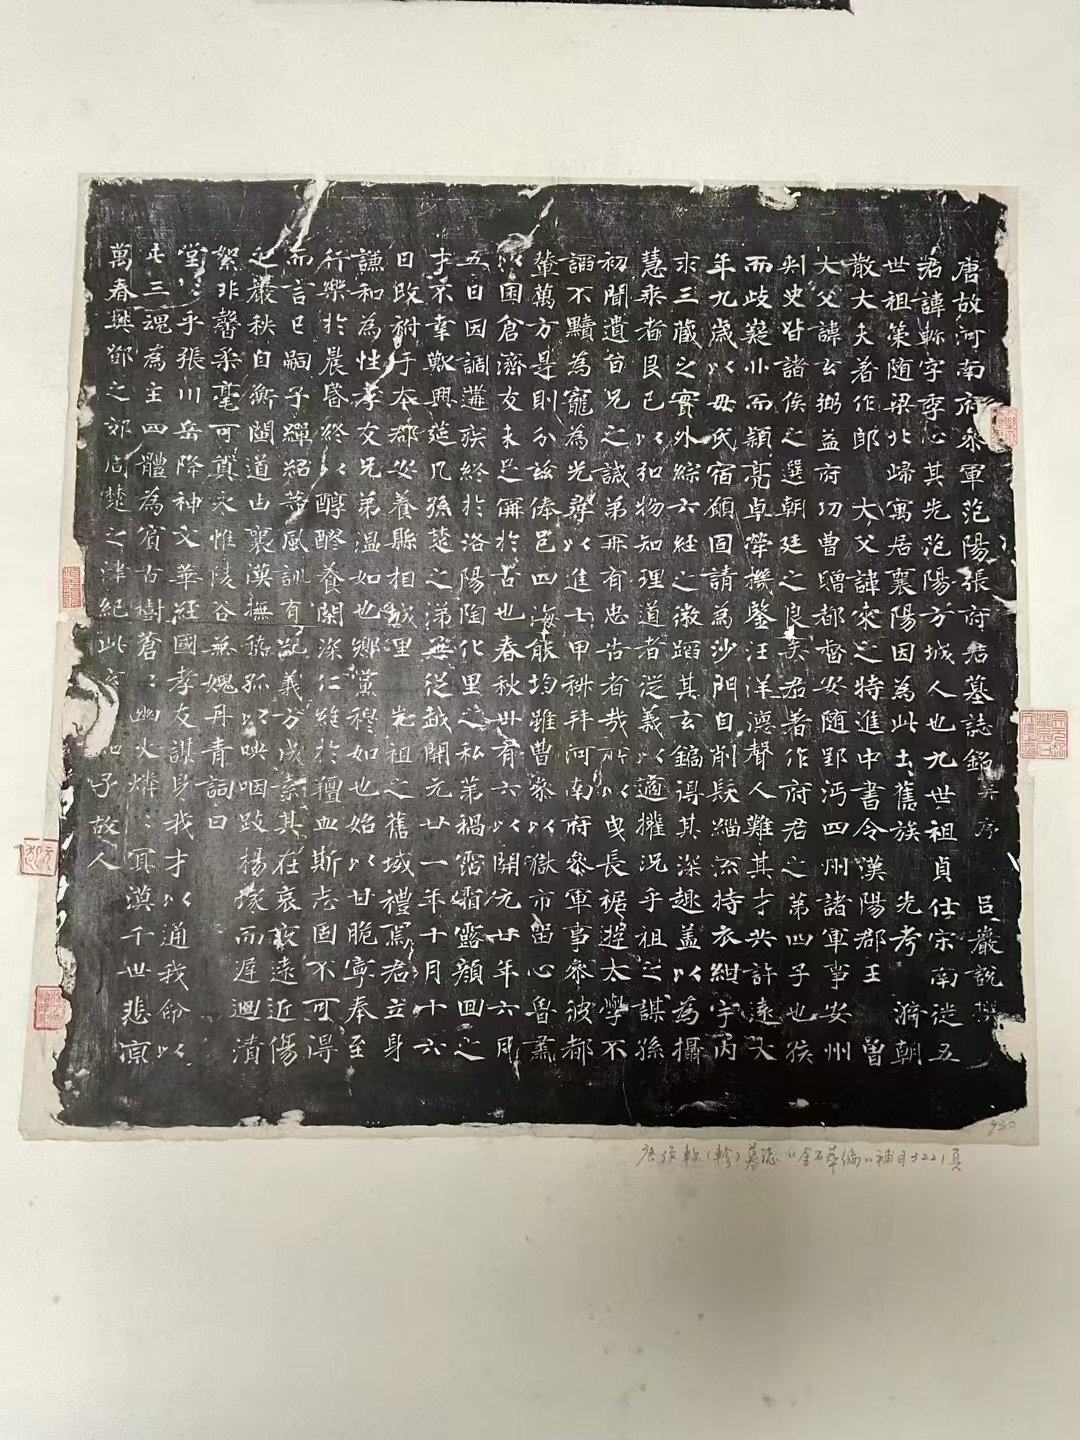 唐故河南府參軍范陽張府君墓誌銘并序 吕巖說撰
君諱軫字季心其先范陽方城人也九世祖貞仕宋南徙五
世祖策隨梁北歸寓居襄陽因為此土舊族 先考 漪朝
散大夫著作郎 大父諱柬之特進中書令漢陽郡王 曾
大父諱玄弼益府功曹贈都督安隨郢沔四州諸軍事安州
刺史皆諸侯之選朝廷之良美君著作府君之第四子也孩
而歧嶷丱而穎亮卓犖機鑒汪洋德聲人難其才共許遠大
年九歲以母氏宿願固請為沙門自削髮緇流持衣紺宇丙
求三藏之實外綜六經之微蹈其玄鎬得其深趣盖以為攝
慧乘者艮已以和物知理道者從義以適權況乎祖之謀孫
初聞遺旨兄之誡弟冊有忠告者哉所以曳長裾遊太學不
謟不黷為寵為光尋以進士甲科拜河南府參軍事參彼都
輦萬方是則分兹俸邑四海能均雖曹參以獄市留心魯肅
以囷倉濟友未足儔於古也春秋卅有六以開元廿年六月
五日因調遘疾終於洛陽陶化里之私第禍霑霜露顏回之
才不幸歎興筵几孫楚之涕無從越開元廿一年十月十六
日改祔于本郡安養縣相城里 先祖之舊域禮焉君立身
謙和為性孝友兄弟溫如也鄉黨穆如也始以甘脆寧奉至
行樂於晨昏終以醇醪養閑深仁維於疆血斯志固不可得
而言已嗣子繟紹等風訓有記義方成素其在哀哀遠近傷
之嚴秩自衡閫道由襄漢撫嵇孤以咉咽跂揚塚而遲迴漬
絮非馨柔毫可貰永惟陵谷無媿丹青詞曰
堂堂乎張川岳降神文華經國孝友謀身我才以通我命以
屯三魂為主四體為賓古樹蒼蒼幽火燐燐冥漠千世悲凉
萬春興鄧之郊居楚之津紀此 子故人
930
唐張軫(軫)墓誌《金石萃編》補目3221頁